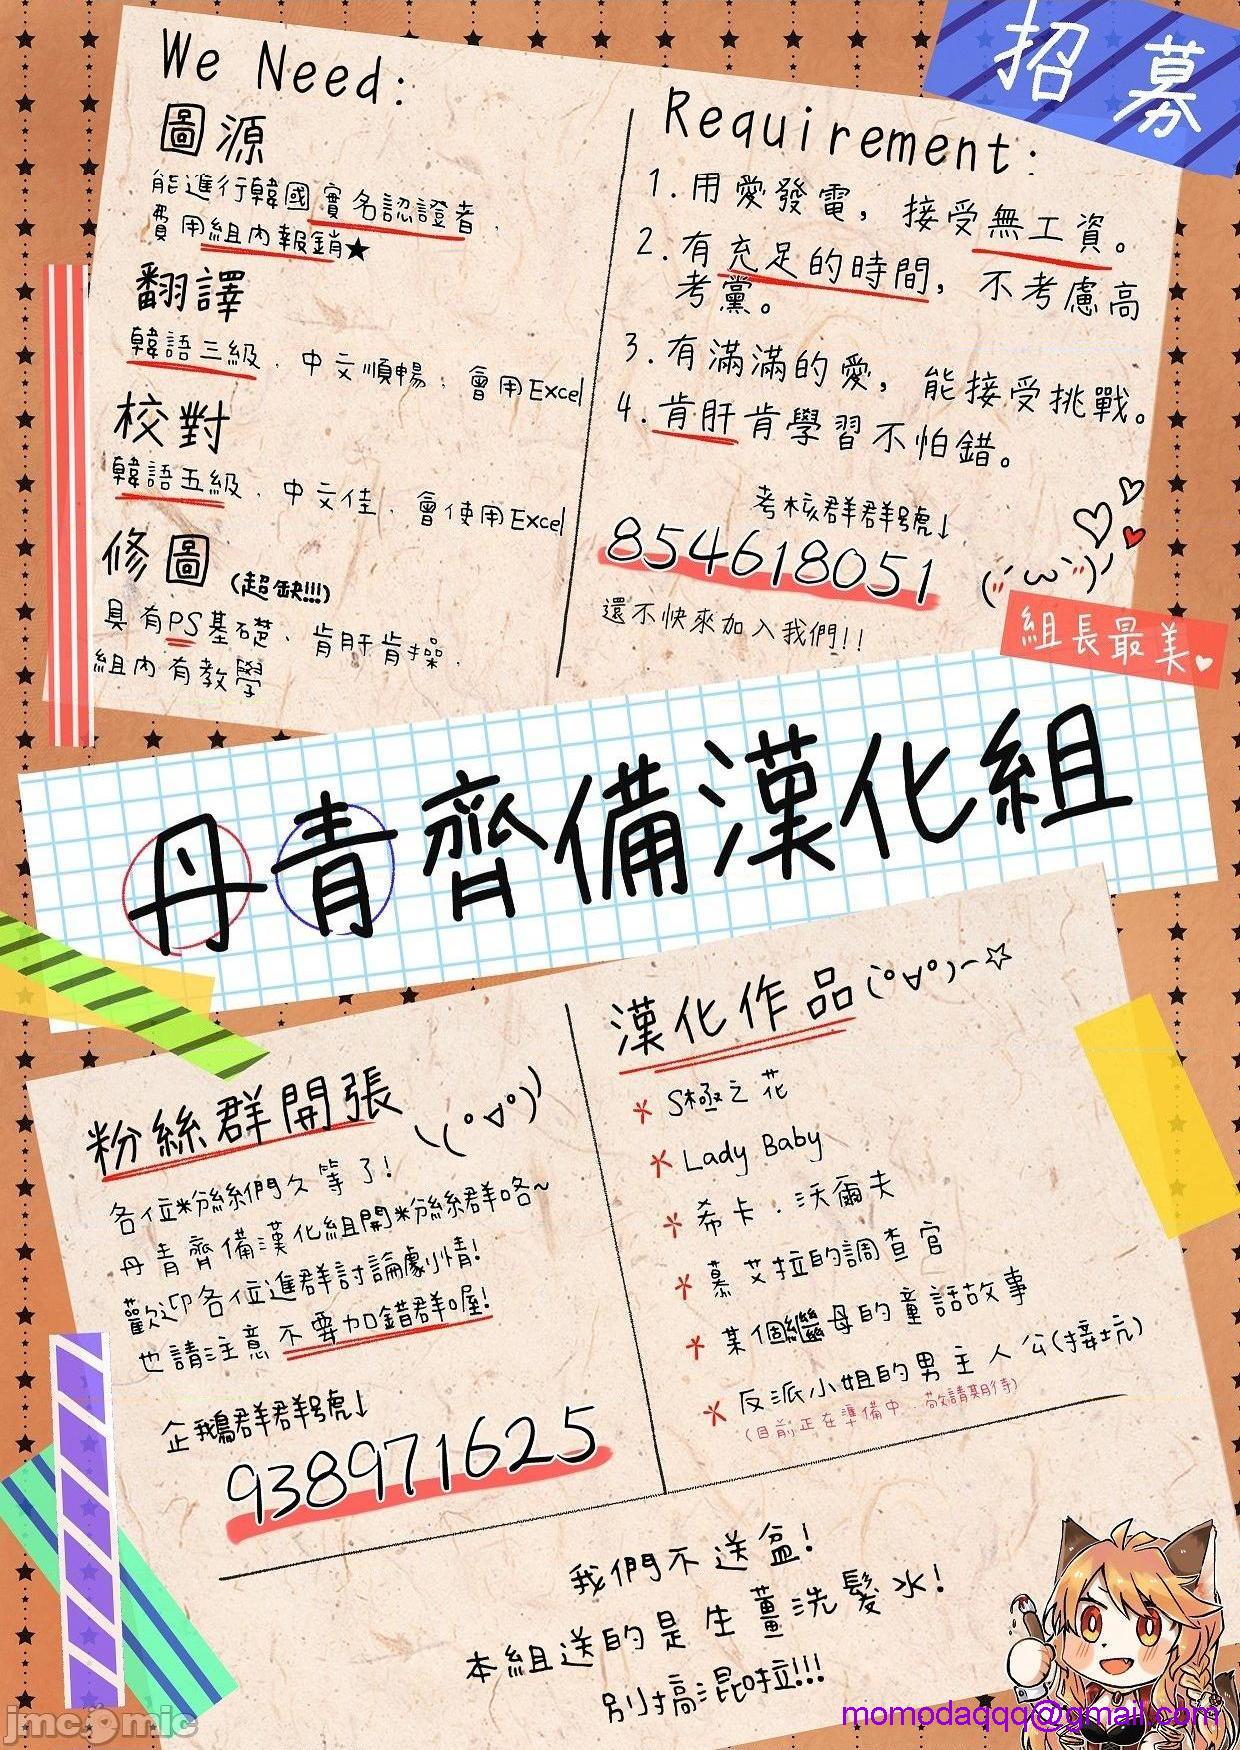 招募
We Need:
圖源
能進行韓國實名認證者.
費用組內報銷★
翻譯
韓語三級、中文順暢、會用Excel
校對
韓語五級、中文佳、會使用Excel
修圖(超缺!!!)
具有PS基礎、肯肝肯操.
組內有教學
Requirement:
1.用愛發電，接受無工資。
2.有充足的時間，不考慮高
考黨。
3.有滿滿的愛，能接受挑戰。
4.肯肝肯學習不怕錯。
考核群群號↓
854618051
還不快來加入我們!!
組長最美♥
丹青齊備漢化組
粉絲群開張
各位粉絲們久等了!
丹青齊備漢化組開粉絲群咯~
歡迎各位進群討論劇情!
也請注意不要加錯群喔!
企鵝群群號↓
938971625
漢化作品
S極之花
Lady Baby
希卡.沃爾夫
慕艾拉的調查官
某個繼母的童話故事
反派小姐的男主人公(接坑)
(目前正在準備中.敬請期待)
我們不送盆!
本組送的是生薑洗髮水!
別搞混啦!!!
momodaqqq@gmail.com
jmcomic